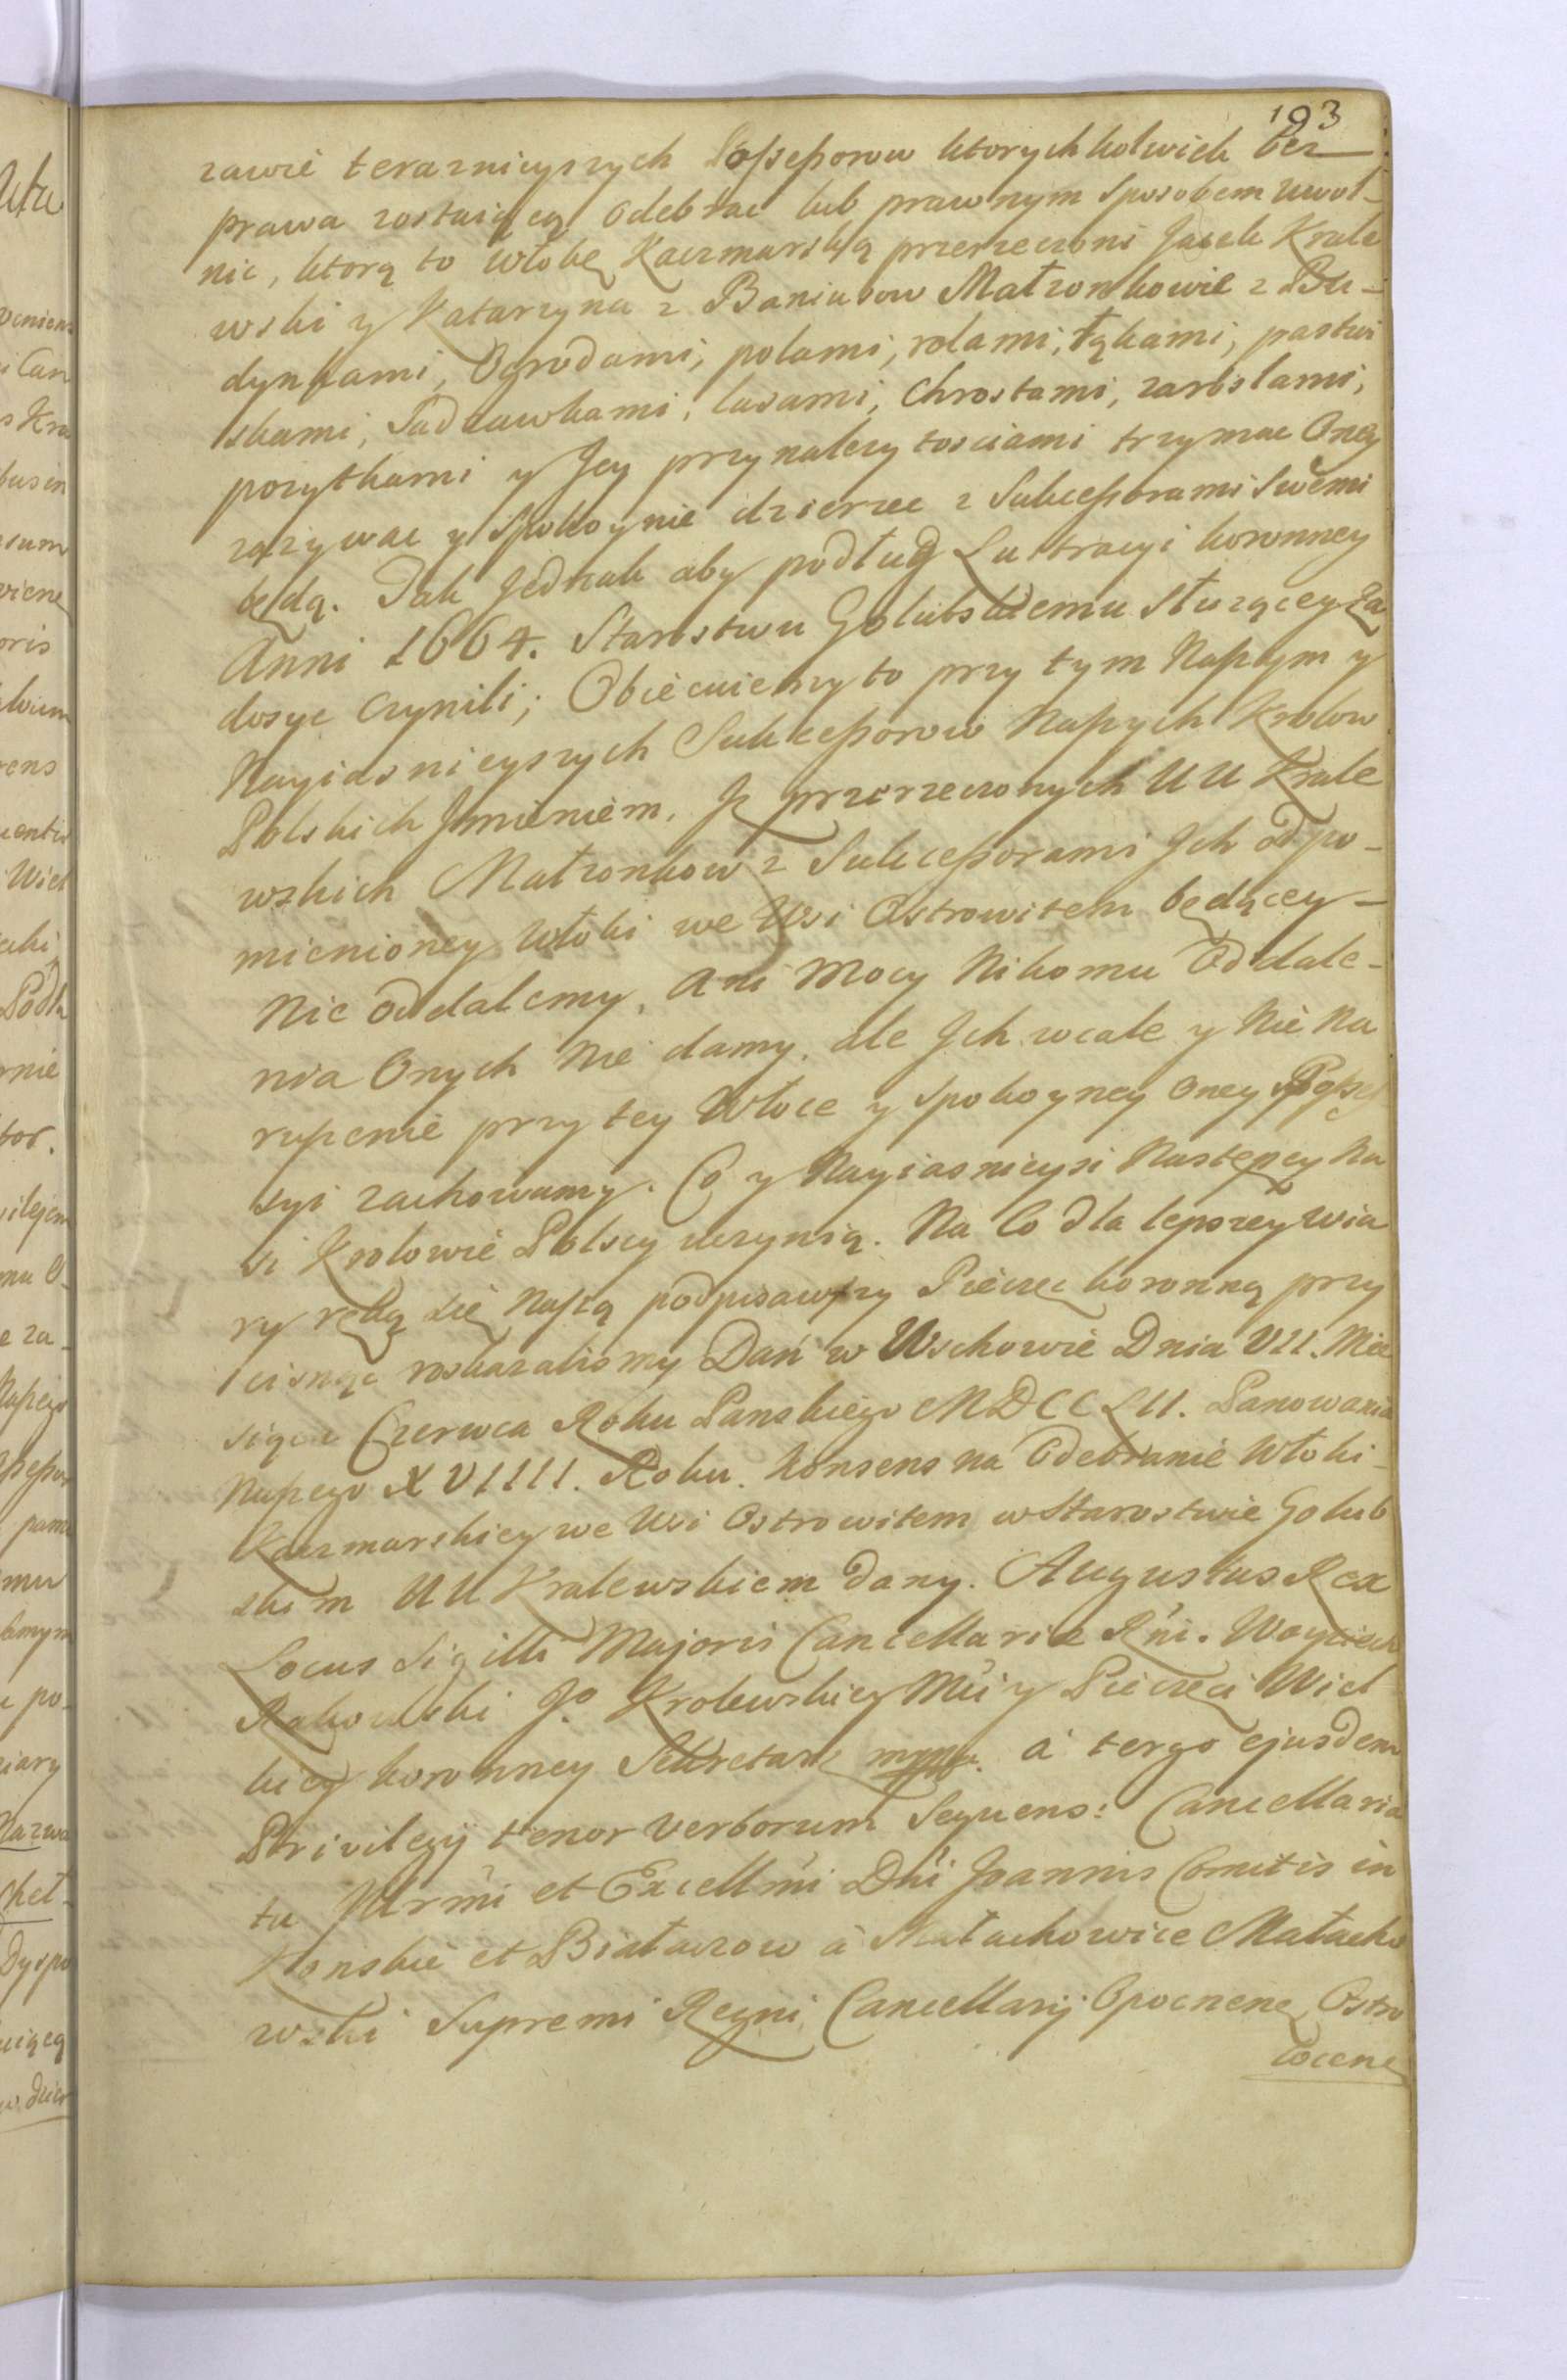 193
zawie teraznieyszych Possessorow ktorychkolwiek bez
prawa zostaiącą odebrac lub prawnym sposobem uwol-
nic, ktorą to włokę Kaczmarską przerzeczoni Jacek Krale
wski y Katarzyna z Baniusow Małzonkowie z Bu-
dynkami, Ogrodami, polami, rolami, łąkami, pastwi
skami, Sadzawkami, lasami, Chrostami, zaroslami,
pozytkami y Jey przynalezytosciami trzymac Oney
zazywac y spokoynie dzierzec z Sukcessorami Swemi
będą. Tak Jednak aby podług Lustracyi koronney
Anni 1664. Starostwu Golubskiemu słuzącey za
dosyc czynili; Obiecuiemy to przy tym Naszym y
Nayiasnieyszych Sukcessorow Naszych Krolow
Polskich Jmieniem, Jz przerzeczonych UU Krale
wskich Małzonkow z Sukcessorami Jch od po-
mienioney Włoki we Wsi Ostrowitem będącey-
Nie oddalemy, Ani Mocy Nikomu Oddale-
nia Onych Nie damy, ale Jch wcale y Nie Na
ruszenie przy tey Włoce y spokoyney oney Posses
syi zachowamy. Co y Nayiasnieysi Nastepcy Na
si Krolowie Polscy uczynią. Na Co dla lepszey wia
ry ręką się Naszą podpisawszy Pieczęc koronną przy
cisnąc roskazalismy Dań w Wschowie Dnia VII. Mie
siąca Czerwca Roku Panskiego MDCCLII. Panowania
Naszego XVIIII. Roku. Konsens na Odebranie Włoki-
Kaczmarskiey we Wsi Ostrowitem w Starostwie Golub
skim UU Kralewskiem dany. Augustus Rex
Locus Sigilli Majoris Cancellariae Rńi. Woyciech
Rakowski Jo Krolewskiey Mći y Pieczęci Wiel
kiey koronney Sekretarz mppa. à tergo ejusdem
Privilegij tenor verborum Sequens: Cancellaria
tu Jllrmi et Excellmi Dńi Joannis Comitis in
Konskie et Białaczow à Małachowice Małacho
wski Supremi Regni Cancellarij Opocnenę Ostro
łocenę